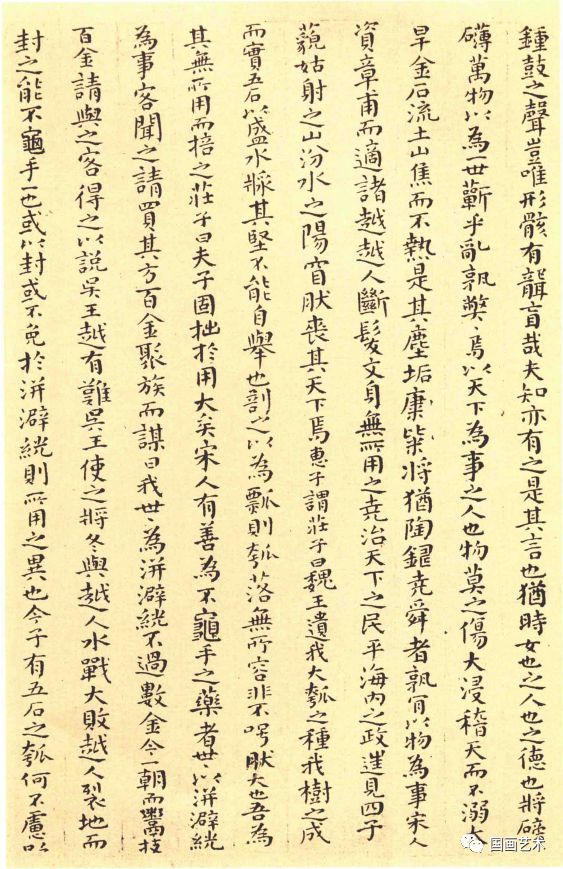 鍾鼓之聲豈唯形骸有聾盲哉夫知亦有之是其言也猶時女也之人也之德也將磅
礴萬物以為一世蘄乎亂孰弊〻焉以天下為事之人也物莫之傷大浸稽天而不溺大
旱金石流土山焦而不熱是其塵垢穅粃將猶陶鑄堯舜者孰肯以物為事宋人
資章甫而適諸越越人斷髮文身無所用之堯治天下之民平海內之政往見四子
藐姑射之山汾水之陽窅然喪其天下焉惠子謂莊子曰魏王遺我大瓠之種我樹之成
而實五石以盛水漿其堅不能自舉也剖之以為瓢則瓠落無所容非不呺然大也吾為
其無所用而掊之莊子曰夫子固拙於用大矣宋人有善為不龜手之藥者世以洴澼絖
為事客聞之請買其方百金聚族而謀曰我世〻為洴澼絖不過數金今一朝而鬻技
百金請與之客得之以說吳王越有難吳王使之將冬與越人水戰大敗越人裂地而
封之能不龜手一也或以封或不免於洴澼絖則所用之異也今子有五石之瓠何不慮以
国画艺术